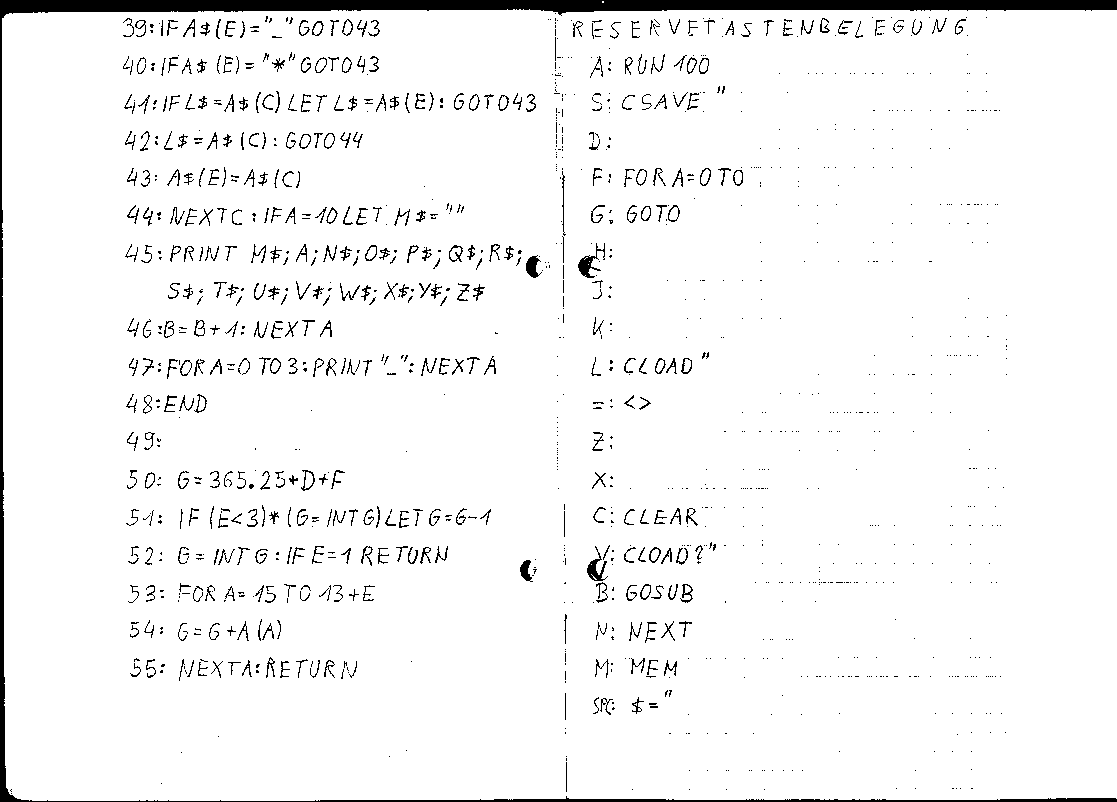 39:IF A$(E)="_"GOTO43
40:IFA$(E)="*"GOTO43
41:IFL$=A$(C)LET L$=A$(E):GOTO43
42:L$=A$(C):GOTO44
43: A$(E)=A$(C)
44: NEXTC:IFA=10LET M$=""
45: PRINT M$;A;N$;O$;P$;Q$;R$;
S$;T$;U$;V$;W$;X$;Y$;Z$
46:B=B+1:NEXT A
47:FOR A=0 TO 3:PRINT "_":NEXT A
48:END
49:
50: G=365.25+D+F
51: IF (E<3)*(G=INT G)LET G=G-1
52: G=INT G:IF E=1 RETURN
53: FOR A=15 TO 13+E
54: G=G+A(A)
55: NEXTA:RETURN
RESERVETASTENBELEGUNG
A: RUN 100
S: CSAVE "
D:
F: FOR A=0 TO
G: GOTO
H:
J:
K:
L: CLOAD "
=: <>
Z:
X:
C: CLEAR
V: CLOAD?"
B: GOSUB
N: NEXT
M: MEM
SPC: $="